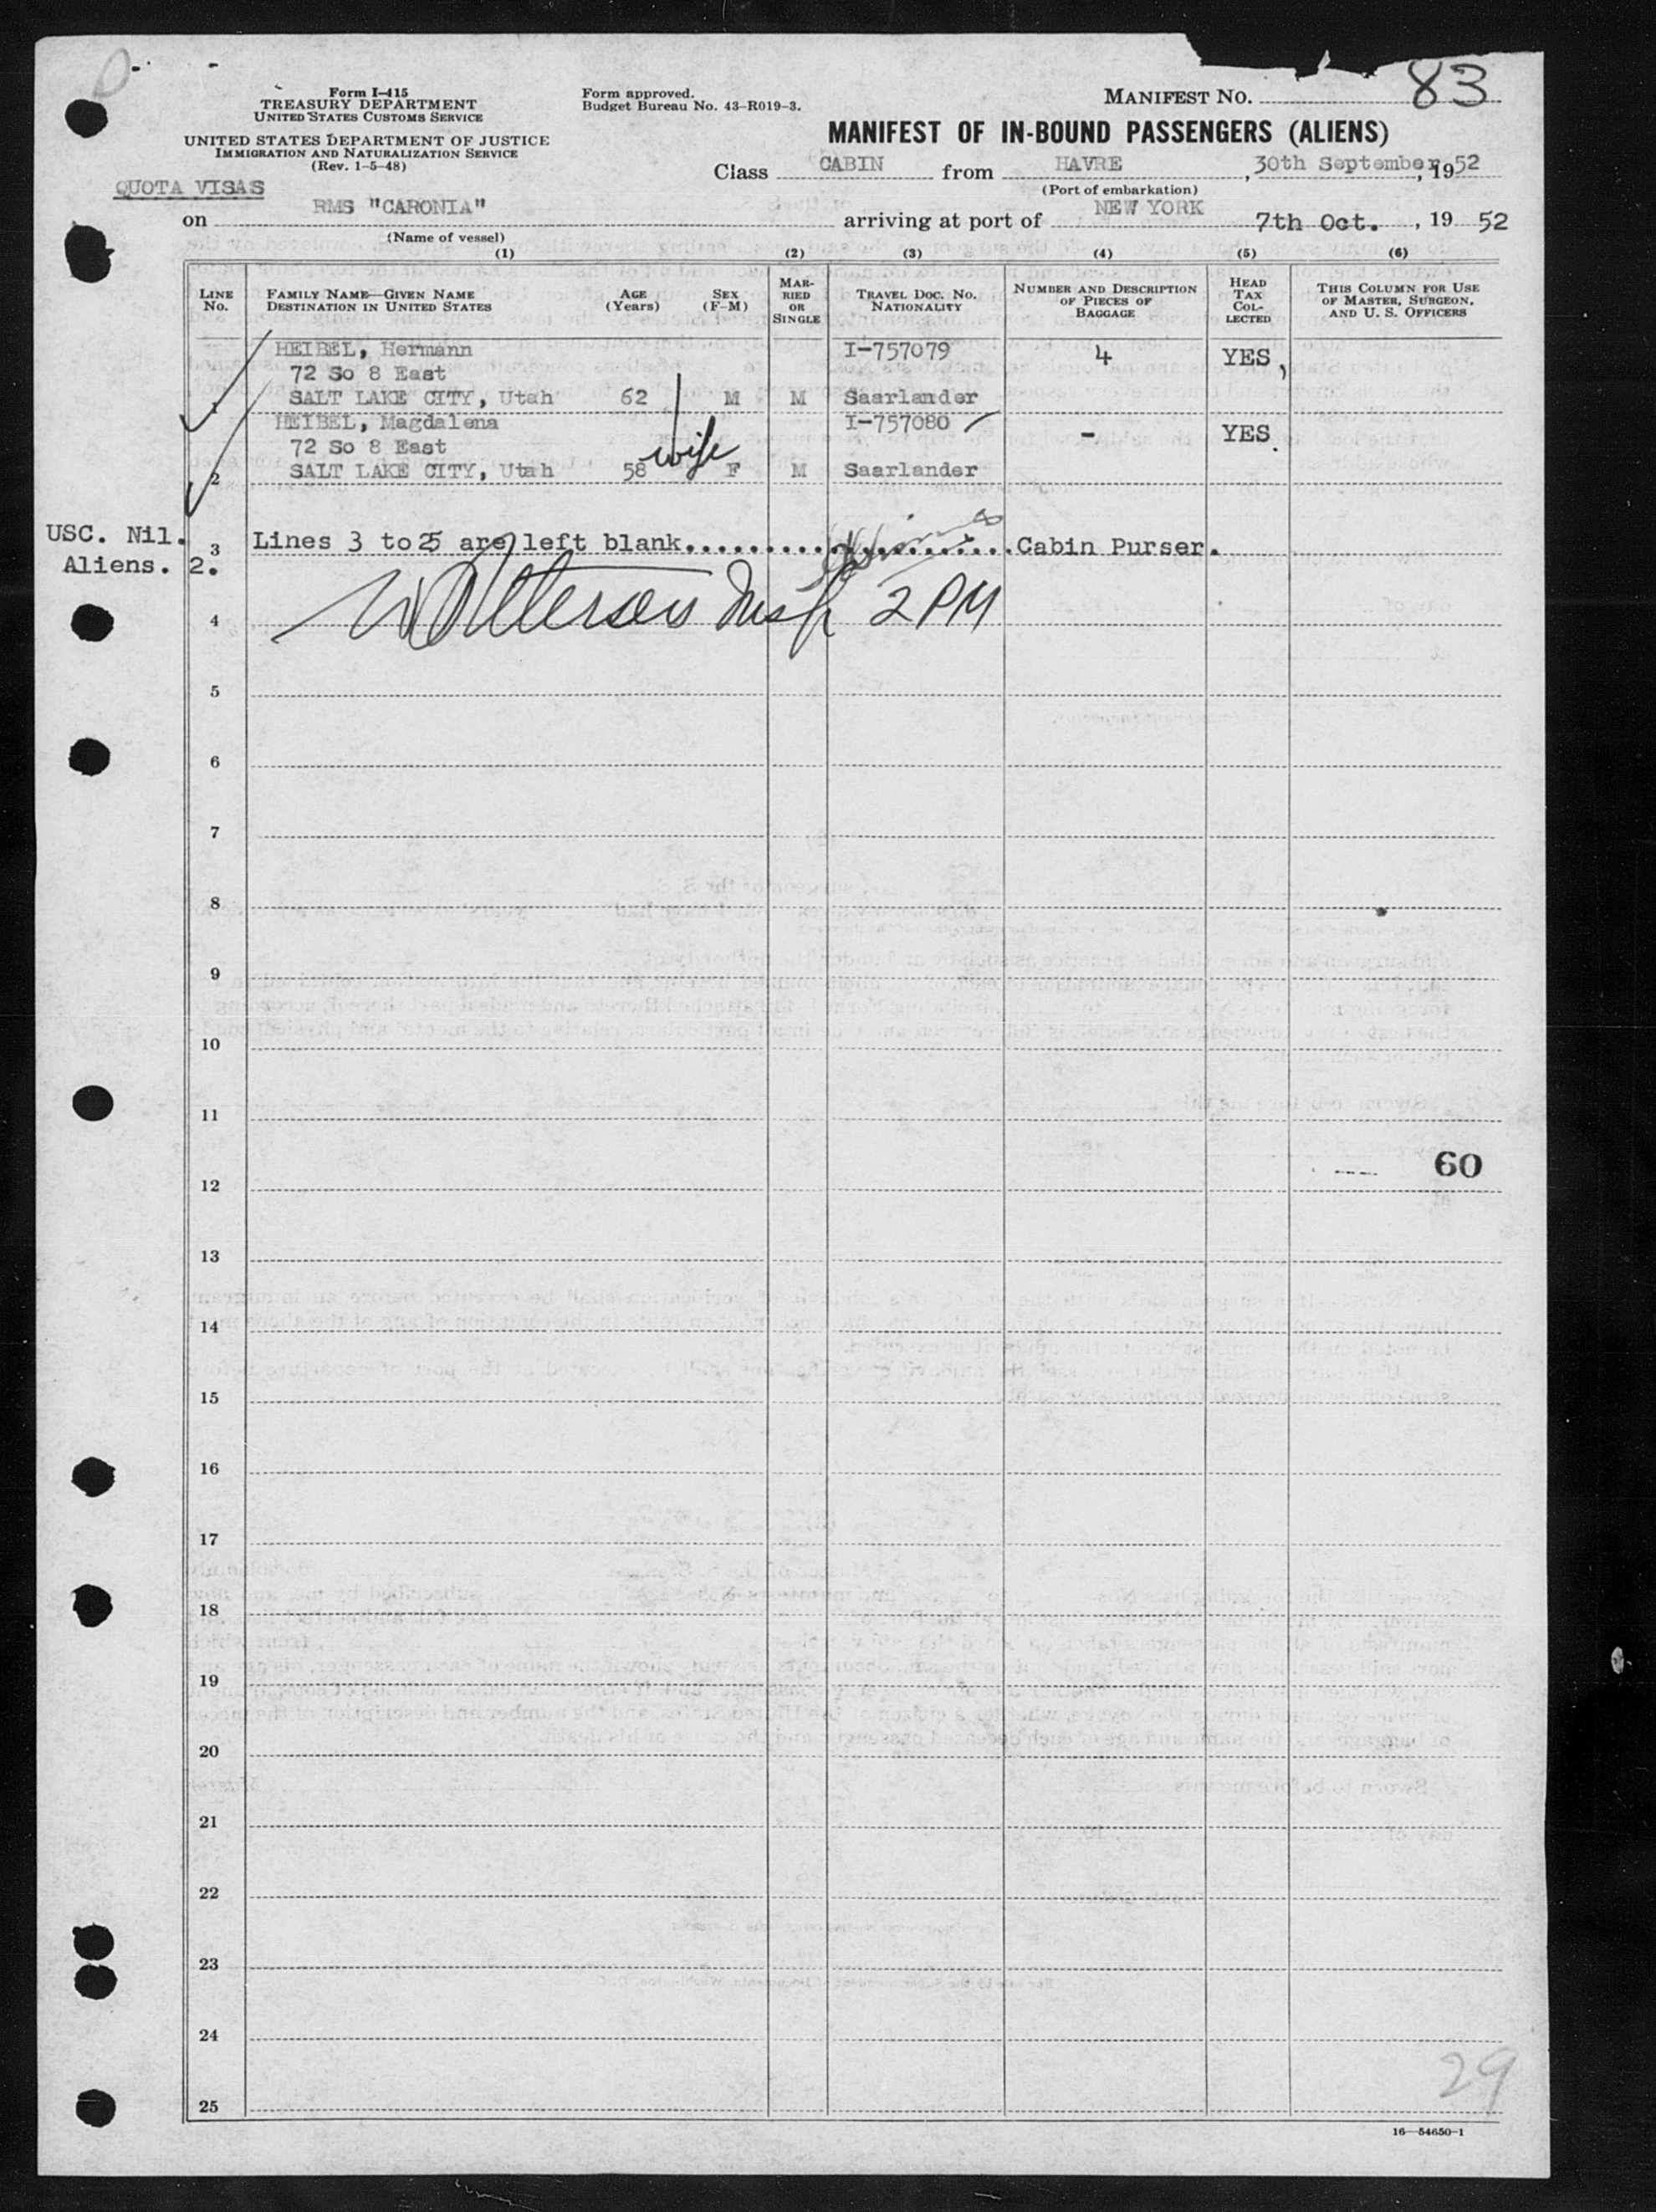 Form I-415
TREASURY DEPARTMENT
UNITED STATES CUSTOMS SERVICE
UNITED STATES DEPARTMENT OF JUSTICE
IMMIGRATION AND NATURALIZATION SERVICE
(Rev. 1-5-48)
Form approved.
Budget Bureau No. 43-R019-3.
MANIFEST No. 83
MANIFEST OF IN-BOUND PASSENGERS (ALIENS)
Class CABIN from HAVRE, 30th September, 1952
(Port of embarkation)
QUOTA VISAS
on RMS "CARONIA" arriving at port of NEW YORK 7th Oct., 19 52
(Name of vessel)
(1) (2) (3) (4) (5) (6)
LINE No. FAMILY NAME—GIVEN NAME DESTINATION IN UNITED STATES AGE (Years) SEX (F-M) MARRIED OR SINGLE TRAVEL DOC. NO. NATIONALITY NUMBER AND DESCRIPTION OF PIECES OF BAGGAGE HEAD TAX COLLECTED THIS COLUMN FOR USE OF MASTER, SURGEON, AND U. S. OFFICERS
HEIBEL, Hermann I-757079 4 YES,
72 So 8 East
1 SALT LAKE CITY, Utah 62 M M Saarlander
HEIBEL, Magdalena I-757080 - YES.
72 So 8 East wife
2 SALT LAKE CITY, Utah 58 F M Saarlander
USC. Nil.
3 Lines 3 to 25 are left blank........................Cabin Purser.
Aliens. 2.
4 Insp 2 PM
5
6
7
8
9
10
11
60
12
13
14
15
16
17
18
19
20
21
22
23
24
29
25
16—54650-1